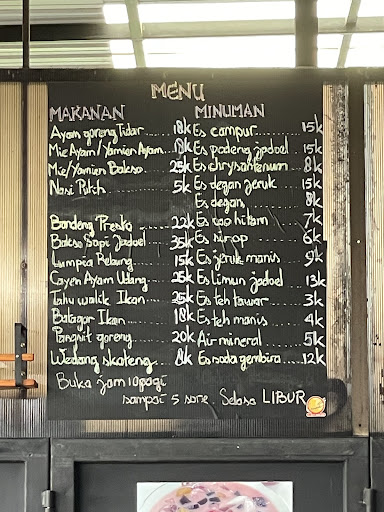 MENU
MAKANAN
Ayam goreng Tidar......18k
Mie Ayam/Yamien Ayam..18k
Mie/Yamien Bakso......25k
Nasi Putih......5k
Bandeng Presto......22k
Bakso Sapi Jadoel...35k
Lumpia Rebung......15k
Cayen Ayam Udang...25k
Tahu walik Ikan......25k
Batagor Ikan......18k
Pangsit goreng......20k
Wedang skoteng......8k
MINUMAN
Es campur......15k
Es podeng jadoel...15k
Es chrysantenum...8k
Es degan jeruk...15k
Es degan......8k
Es hitam......7k
Es sirop......6k
Es jeruk manis...9k
Es limun jadoel...13k
Es teh tawar......3k
Es teh manis......4k
Air mineral......5k
Es soda gembira...12k
Buka jam 10 pagi
sampai 5 sore. Selasa LIBUR